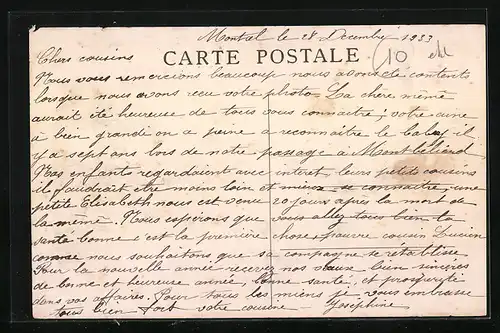 Montrel le 28 Decembre 1933
Chers cousins
CARTE POSTALE
10
Nous vous remercions beaucoup nous avons été contents
lorsque nous avons recu votre photo La chere mémé
aurait été heureuse de tous vous connaitre; votre ainé
à bien grandi on a peine a reconnaitre le baby il
y a sept ans lors de notre passage à Montbéliard
Mes enfants regardaient avec intret leurs petits cousins
il faudrait etre moins loin et mieux se connaitre, une
petite Elisabeth nous est venu 20 jours après la mort de
la mémé. Nous esperons que vous allez tous bien la
santé bonne c'est la première chose, pauvre cousin Lucien
comme nous souhaitons que sa compagne se rétablisse
Pour la nouvelle année recevez nos vœux bien sincères
de bonne et heureuse année, bonne santé, et prospérité
dans vos affaires. Pour tous les miens je vous embrasse
tous bien fort votre cousine - Joséphine